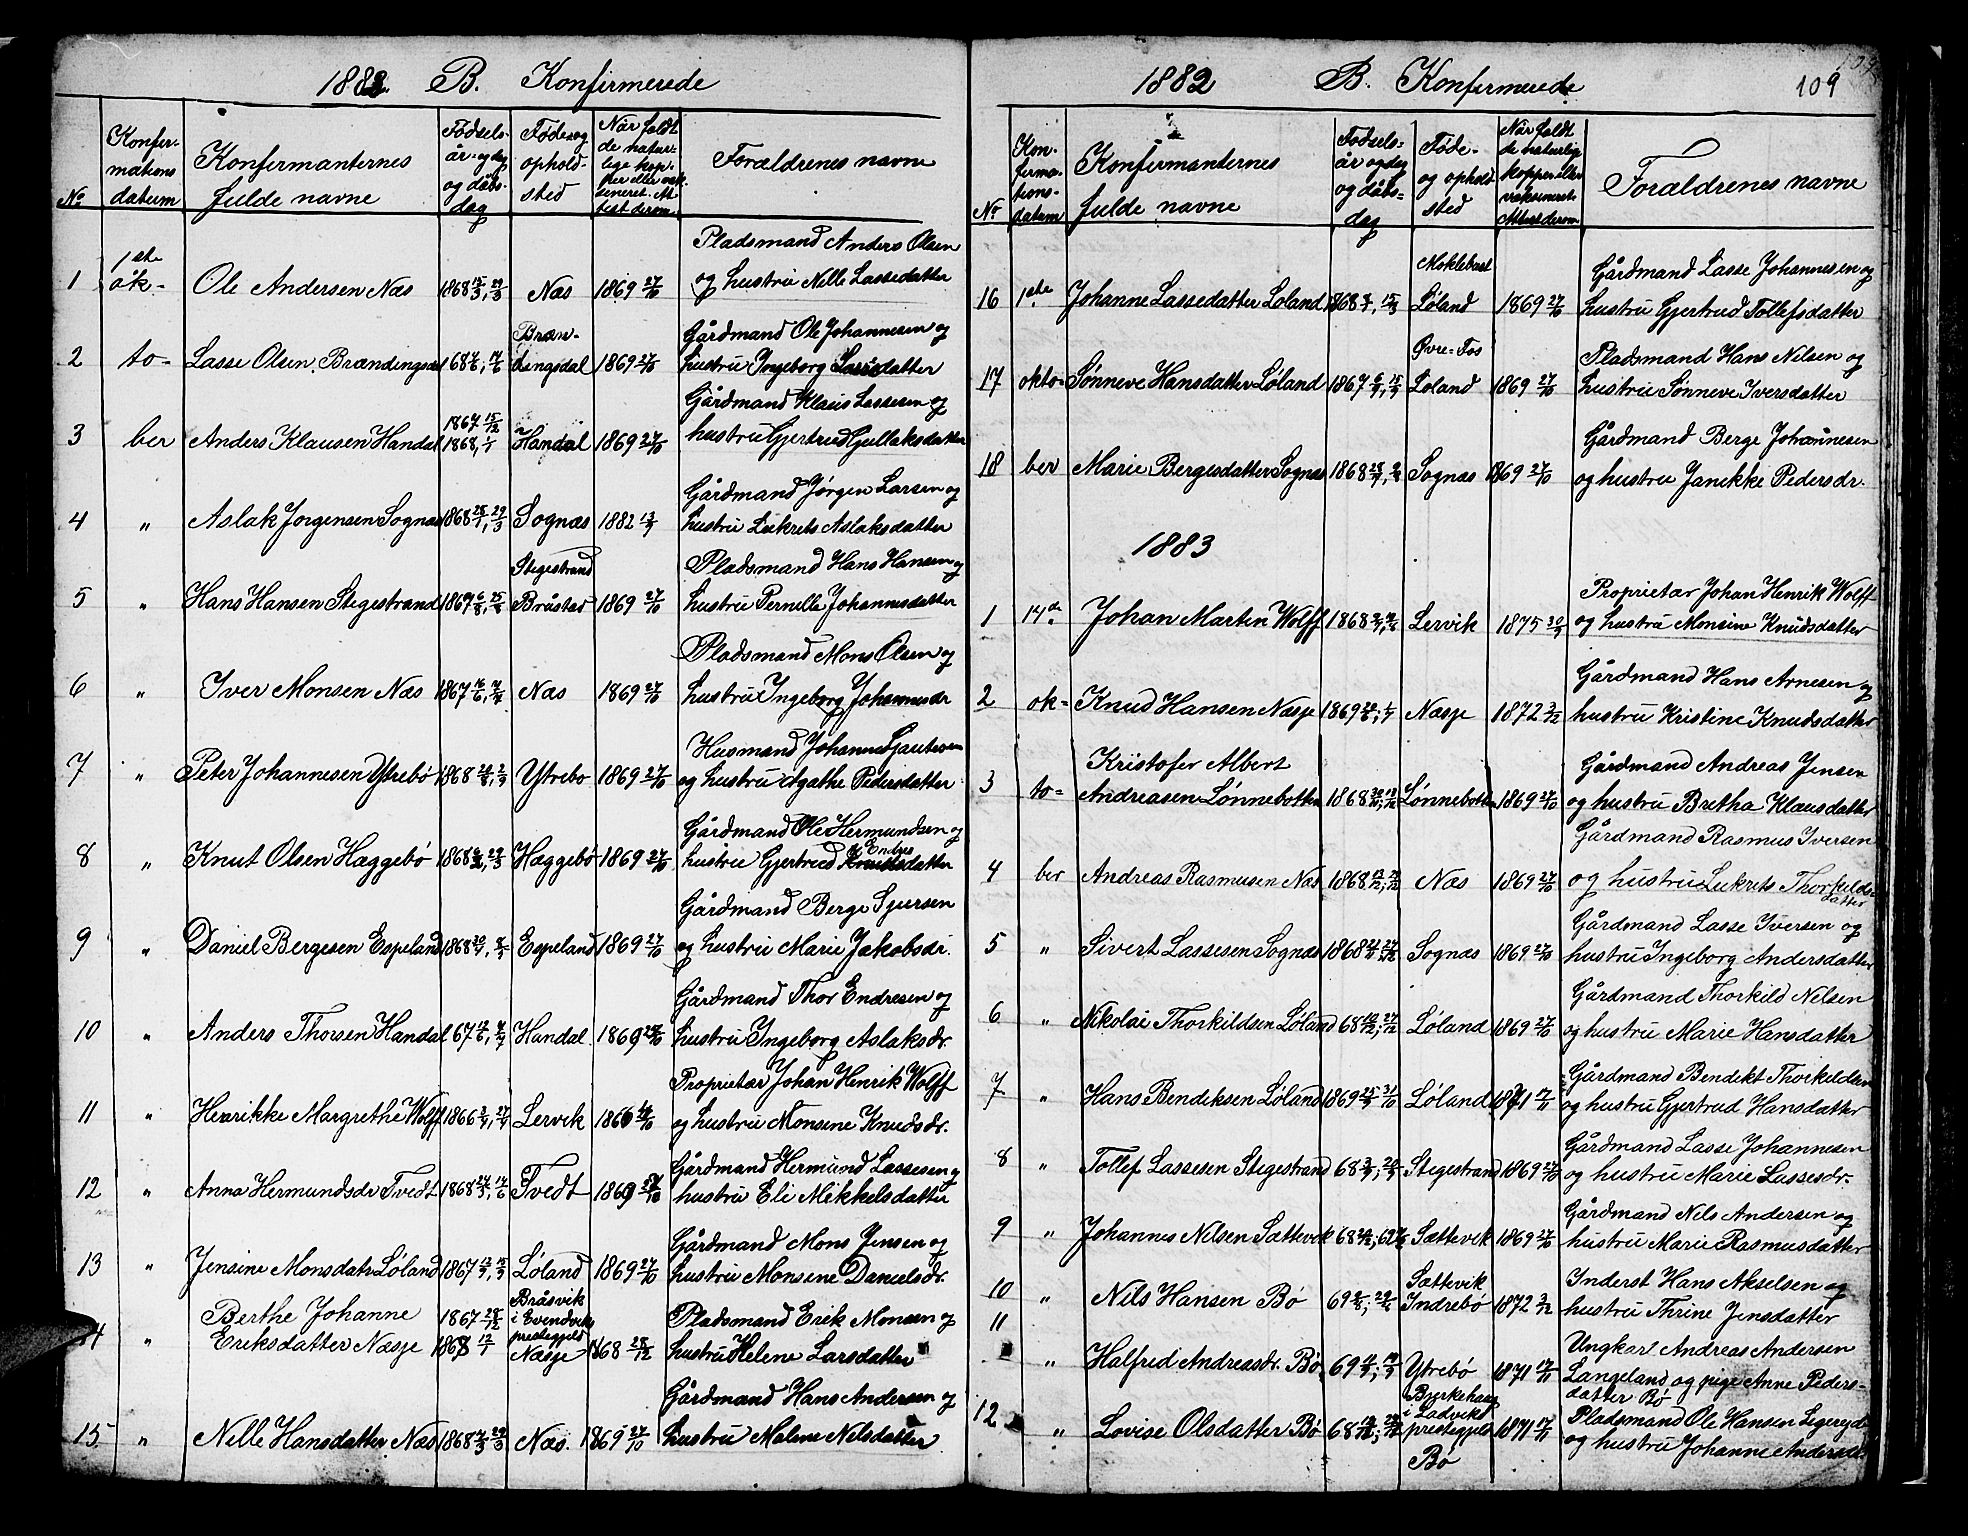 1882 B. Konfirmerede
No
Konfirmations datum
Konfirmanternes fulde navne
Fødselsår og dag og dåbsdag
Føde og opholdsted
Når havt de naturlige kopper eller vaksineret. Attest derom
Forældrenes navne
1 1ste ok- Ole Andersen Næs 1868 Næs 1869 27/10 Pladsmand Anders Olsen
og hustru Nille Lassedatter
2 to- Lasse Olsen Brændingsdal Brændingsdal 1869 27/10 Gårdmand Ole Johannesen og
hustru Ingeborg Lassedatter
3 ber Anders Klausen Handal 1867 15/12 1868 Handal 1869 27/10 Gårdmand Klaus Lassesen og
hustru Gjertrud Gullaksdatter
4 " Aslak Jørgensen Sognæs 1868 Sognæs 1882 Gårdmand Jørgen Larsen og
hustru Lukrets Aslaksdatter
5 " Hans Hansen Stigestrand Stigestrand Brustad 1869 27/10 Pladsmand Hans Hansen og
hustru Pernille Johannesdatter
6 " Iver Monsen Næs 1867 Næs 1869 27/10 Pladsmand Mons Olsen og
hustru Ingeborg Johannesdr
7 " Peter Johannesen Ytrebø 1868 Ytrebø 1869 27/10 Husmand Johannes Gautesen
og hustru Agathe Pedersdatter
8 " Knut Olsen Hæggebø 1868 Hæggebø 1869 27/10 Gårdmand Ole Hermundsen og
hustru Gjertrud Endresdatter
9 " Daniel Bergesen Espeland 1868 Espeland 1869 27/10 Gårdmand Berge Sjursen
og hustru Marie Jakobsdr.
10 " Anders Thorsen Handal 67 Handal. 1869 27/10 Gårdmand Thor Endresen og
hustru Ingeborg Aslaksdr.
11 " Henrikke Margrethe Wolff 1866 Lervik Proprietær Johan Henrik Wolff
og hustru Monsine Knudsdr.
12 " Anna Hermundsdr Tvedt 1868 Tvedt 1869 27/10 Gårdmand Hermund Lassesen og
hustru Eli Mikkelsdatter
13 " Jensine Monsdatr Løland 1867 Løland 1869 27/10 Gårdmand Mons Jensen og
hustru Monsine Danielsdr.
14 " Berthe Johanne
Eriksdatter Næsje 1867 28/12 Bråsvik i Evendviks prestegjeld Næsje 1868 28/12 Pladsmand Erik Monsen og
hustru Helene Larsdatter
15 " Nille Hansdatter Næs 1868 Næs. 1869 27/10 Gårdmand Hans Andersen og
hustru Malene Nilsdatter
1882 B. Konfirmerede 109
No
Konfirmationsdatum
Konfirmanternes fulde navne
Fødselsår og dag og dåbsdag
Føde- og opholdsted
Når havt de naturlig kopper eller vaksineret. Attest derom
Forældrenes navne
16 1ste Johanne Lassedatter Løland 1868 Moklebust Løland 1869 27/10 Gårdmand Lasse Johannesen og
hustru Gjertrud Tollefsdatter
17 okto- Sønneve Hansdatter Løland 1867 Øvre-Fos Løland 1869 27/10 Pladsmand Hans Nilsen og
hustru Sønneve Iversdatter
18 ber Marie Bergesdatter Sognæs 1868 Sognæs 1869 27/10 Gårdmand Berge Johannesen
og hustru Janikke Pedersdr.
1883
1 14de Johan Martin Wolff 1868 Lervik 1875 Proprietær Johan Henrik Wolff
og hustru Monsine Knudsdatter
2 ok- Knud Hansen Næsje 1869 Næsje 1872 3/12 Gårdmand Hans Arnesen og
hustru Kristine Knudsdatter
3 to- Kristofer Albert
Andreasen Lønnebotten 1868 Lønnebotten 1869 27/10 Gårdmand Andreas Jensen
og hustru Bretha Klausdatter
4 ber Andreas Rasmusen Næs 1868 Næs 1869 27/10 Gårdmand Rasmus Iversen
og hustru Lukrets Thorkildsdatter
5 " Sivert Lassesen Sognæs 1868 Sognæs 1869 27/10 Gårdmand Lasse Iversen og
hustru Ingeborg Andersdatter
6 " Nikolai Thorkildsen Løland 68 Løland 1869 27/10 Gårdmand Thorkild Nilsen
og hustru Marie Hansdatter
7 " Hans Bendiksen Løland 1869 Løland 1871 17/11 Gårdmand Bendikt Thorkildsen
og hustru Gjertrud Hansdatter
8 " Tollef Lassesen Stigestrand 68 Stigestrand 1869 27/10 Gårdmand Lasse Johannesen
og hustru Marie Lassesdr-
9 " Johannes Nilsen Sættevik 68 Sættevik 1869 27/10 Gårdmand Nils Andersen og
hustru Marie Rasmusdatter
10 " Nils Hansen Bø 69 Sættevik Indrebø 1872 3/12 Inderst Hans Akselsen og
hustru Thrine Jensdatter
11 " Halfrid Andreasdr. Bø 69 Ytrebø 1871 17/11 Ungkarl Andreas Andersen
Langeland og pige Anne Pedersdatter Bø
12 " Lovise Olsdatter Bø 68 Byrkehaug i Ladviks prestegjeld Bø 1871 17/11 Pladsmand Ole Hansen
og hustru Johanne Andersdtr